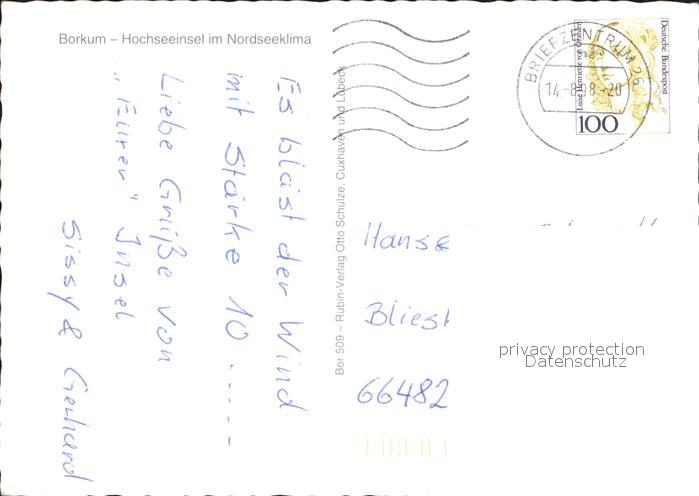 Borkum – Hochseeinsel im Nordseeklima
Es bläst der Wind
mit Stärke 10 ......
Liebe Grüße von
„Eurer" Insel
Sissy & Gerhard
Bor 509 – Rubin-Verlag Otto Schulze, Cuxhaven und Lübeck
BRIEFZENTRUM 26
14-8.98-20
Deutsche Bundespost
100
66482
privacy protection
Datenschutz